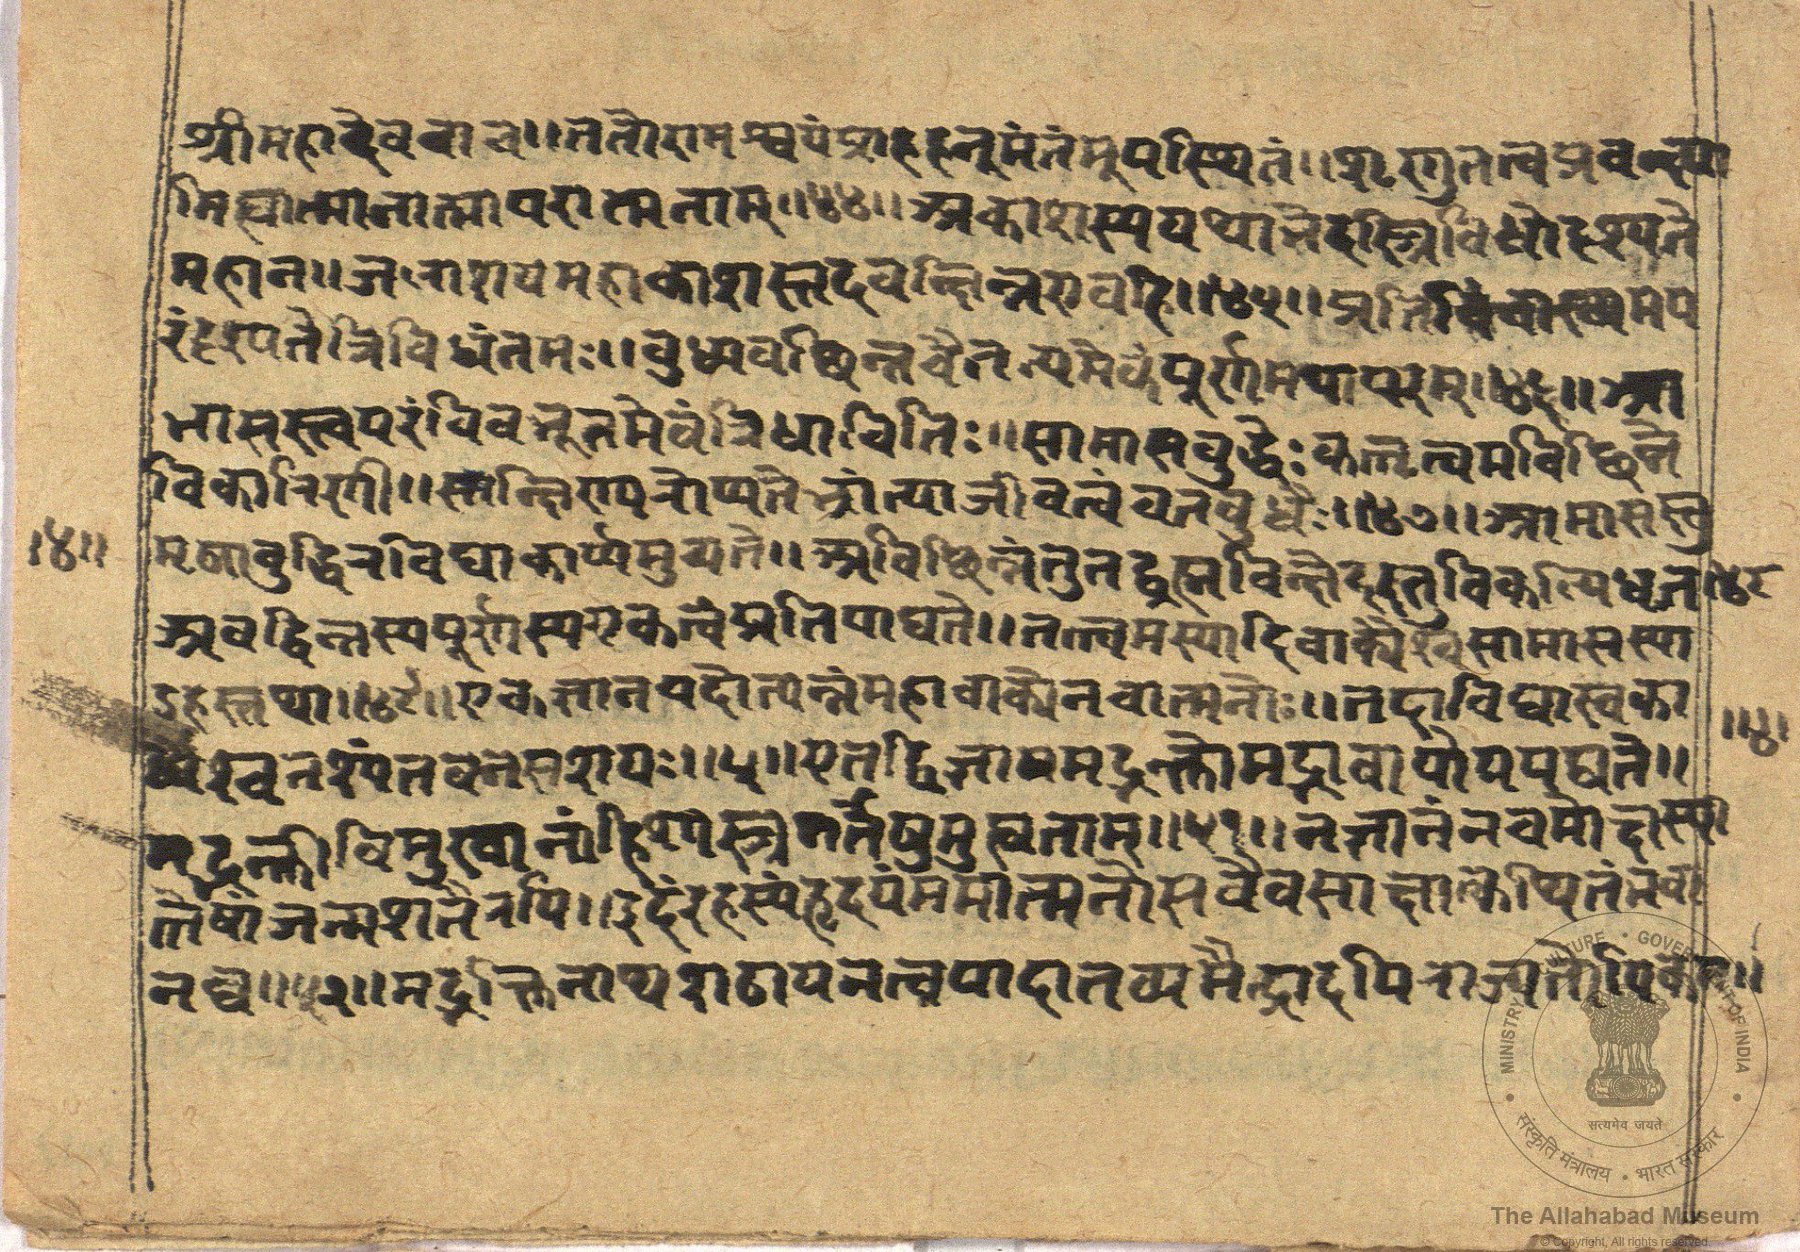 श्रीमहादेववाच ॥ ततोरामश्वयंप्राहहनूमंतंमूपस्थितं ॥ शृणुतत्वप्रवक्ष्या
मिह्यात्मानात्मापरात्मनाम् ॥४४॥ अकाशस्ययथाभेदास्त्रिविधोदृश्यते
महान ॥ जलाशयमहाकाशस्तदवन्छिन्नएवहि ॥४५॥ प्रतिबिंबाख्यमप
रंदृश्यतेत्रिविधंतमः ॥ बुध्यवछिन्नचैतन्यमेकंपूर्णमथापरम् ॥४६॥ आ
भासस्त्वपरंविवभूतमेवंत्रिधाचितिः ॥ साभासवुद्धेः कर्तृत्वमविछिन्ने
विकारिणी ॥ भ्रांत्याजीवत्वंचतवुधैः ॥४७॥ आभासस्तु
मृषाबुद्धिरविद्याकार्य्यमुच्यते ॥ अविछिन्नंतुतद्ब्रह्मविछेदस्तुविकल्पिधतः ॥४८
अवछिन्नस्यपूर्णस्यएकत्वंप्रतिपाद्यते ॥ तत्त्वमस्यादिवाक्यैश्चसाभासस्या
ऽहस्तथा ॥४९॥ एकज्ञानयदोत्पन्नंमहावाक्येनचात्मनोः ॥ तदाविद्यास्वका
र्यैश्चनश्यंतवनसशयः ॥५॥ एतद्विज्ञायमद्भक्तोमद्भावायोपपद्यते ॥
मद्भक्तीविमुखानांहिशास्त्रगर्तेषुमुह्यताम् ॥५१॥ नज्ञानंनचमोक्षस्या
तेषांजन्मशतैरपि ॥ इदंरहस्यंहृदयंममात्मनोसवैवसाक्षात्कथितंतवा
नघ ॥५२॥ मद्भक्तिनायशठायनत्वयादातव्यमैन्द्रादपिराज्यतोधिकम् ॥
।४॥
॥४।
MINISTRY OF CULTURE • GOVERNMENT OF INDIA
सत्यमेव जयते
संस्कृति मंत्रालय • भारत सरकार
The Allahabad Museum
© Copyright, All rights reserved.